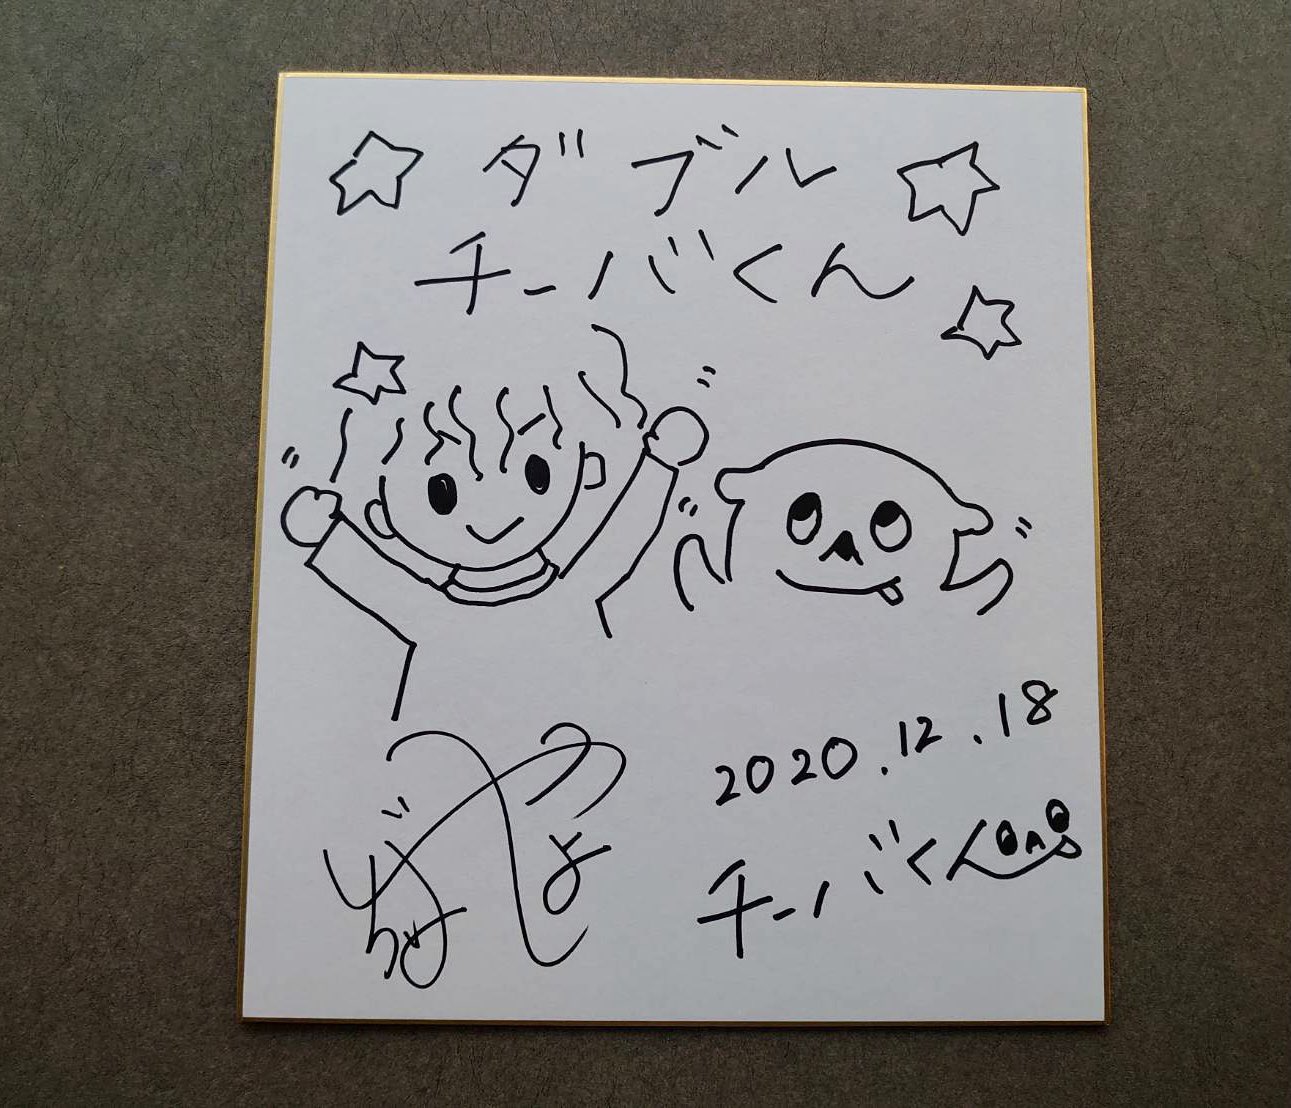 ダブル
チーバくん
2020.12.18
チーバくん